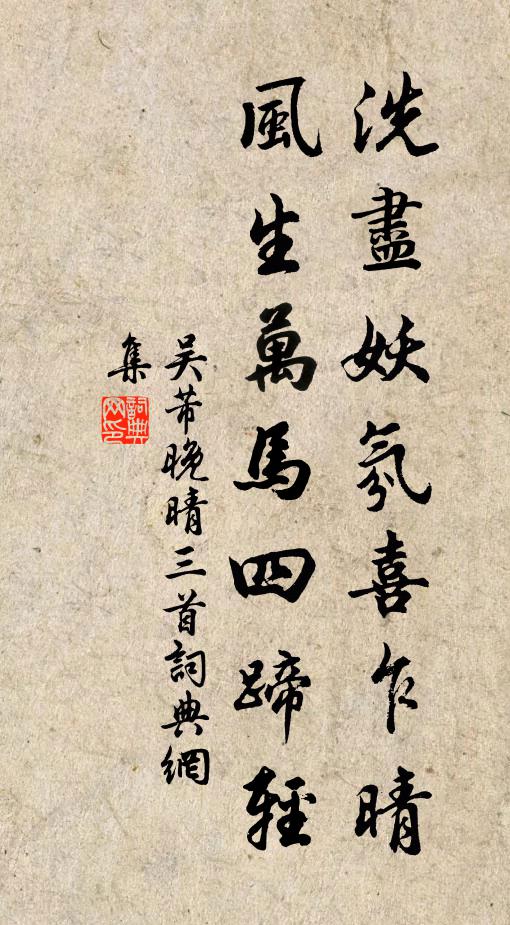 洗盡妖氛喜乍晴
風生萬馬四蹄輕
吴芾晚晴三首詞典網
集
詞典网印